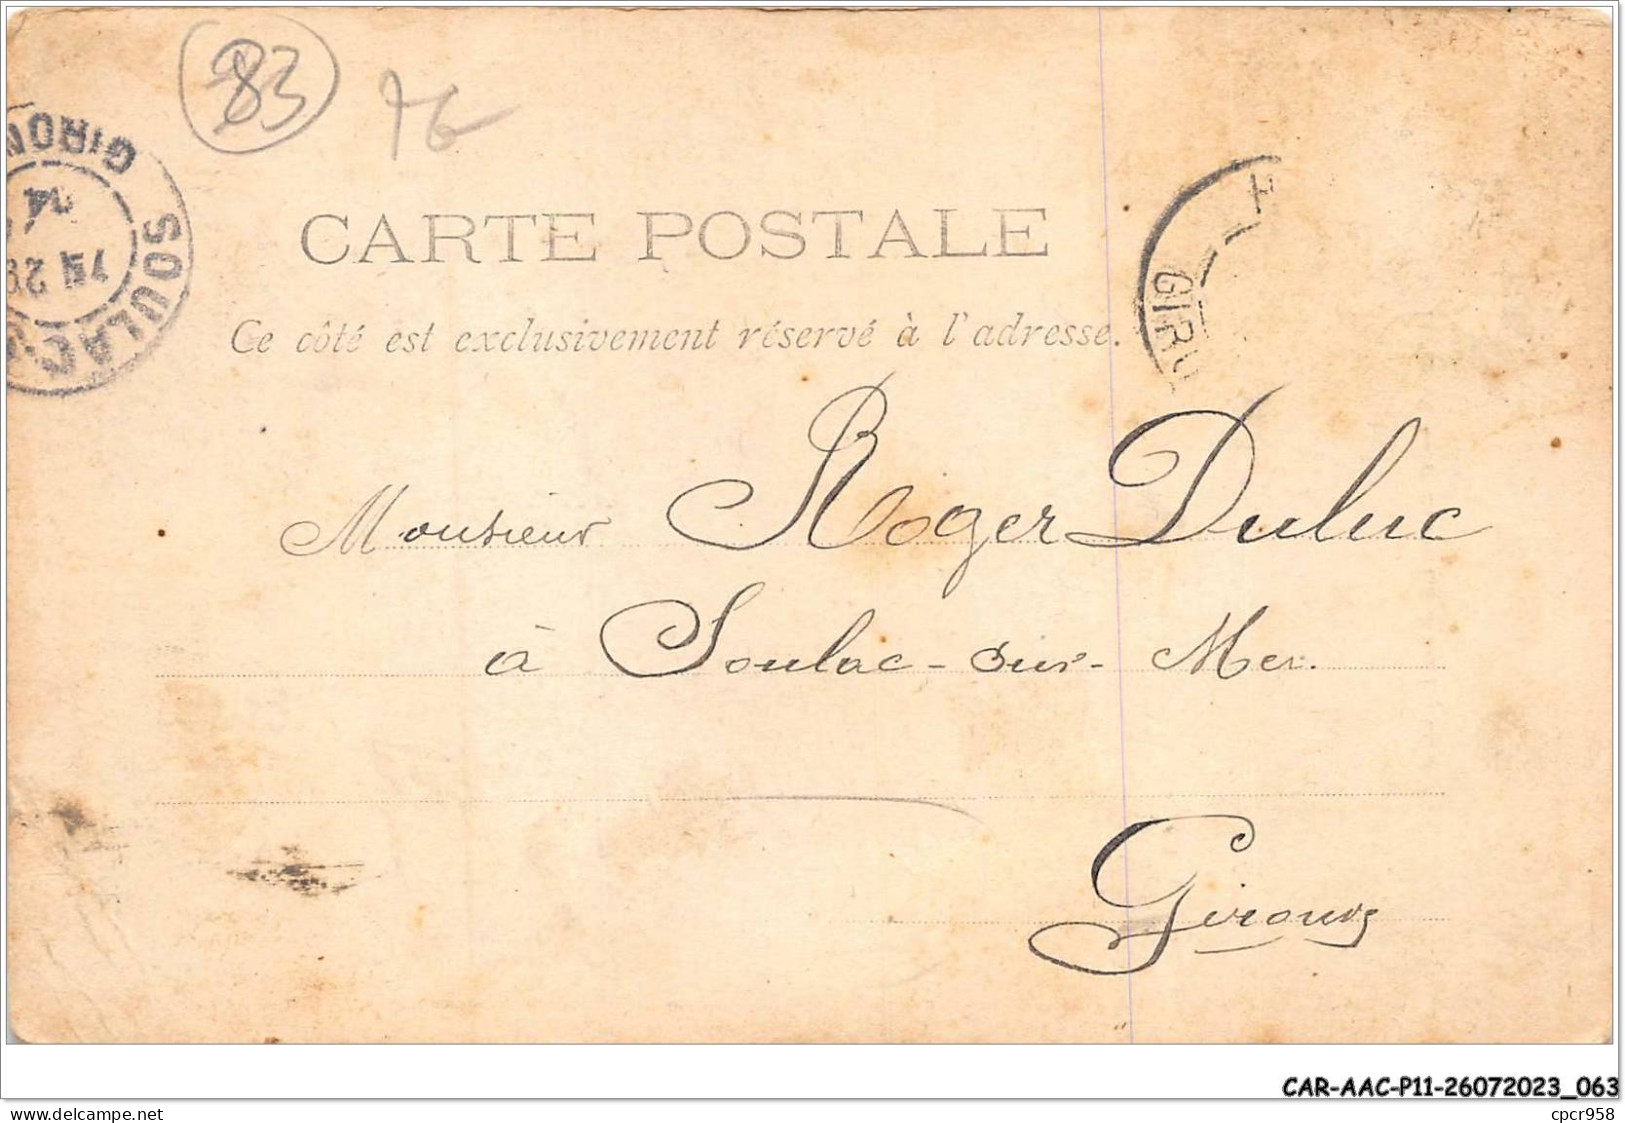 83
76
CARTE POSTALE
Ce côté est exclusivement réservé à l'adresse.
GIRON
04
28
SOULAC
GIRO
Monsieur Roger Duluc
à Soulac-sur-Mer.
Gironde
CAR-AAC-P11-26072023_063
www.delcampe.net
cpcr958